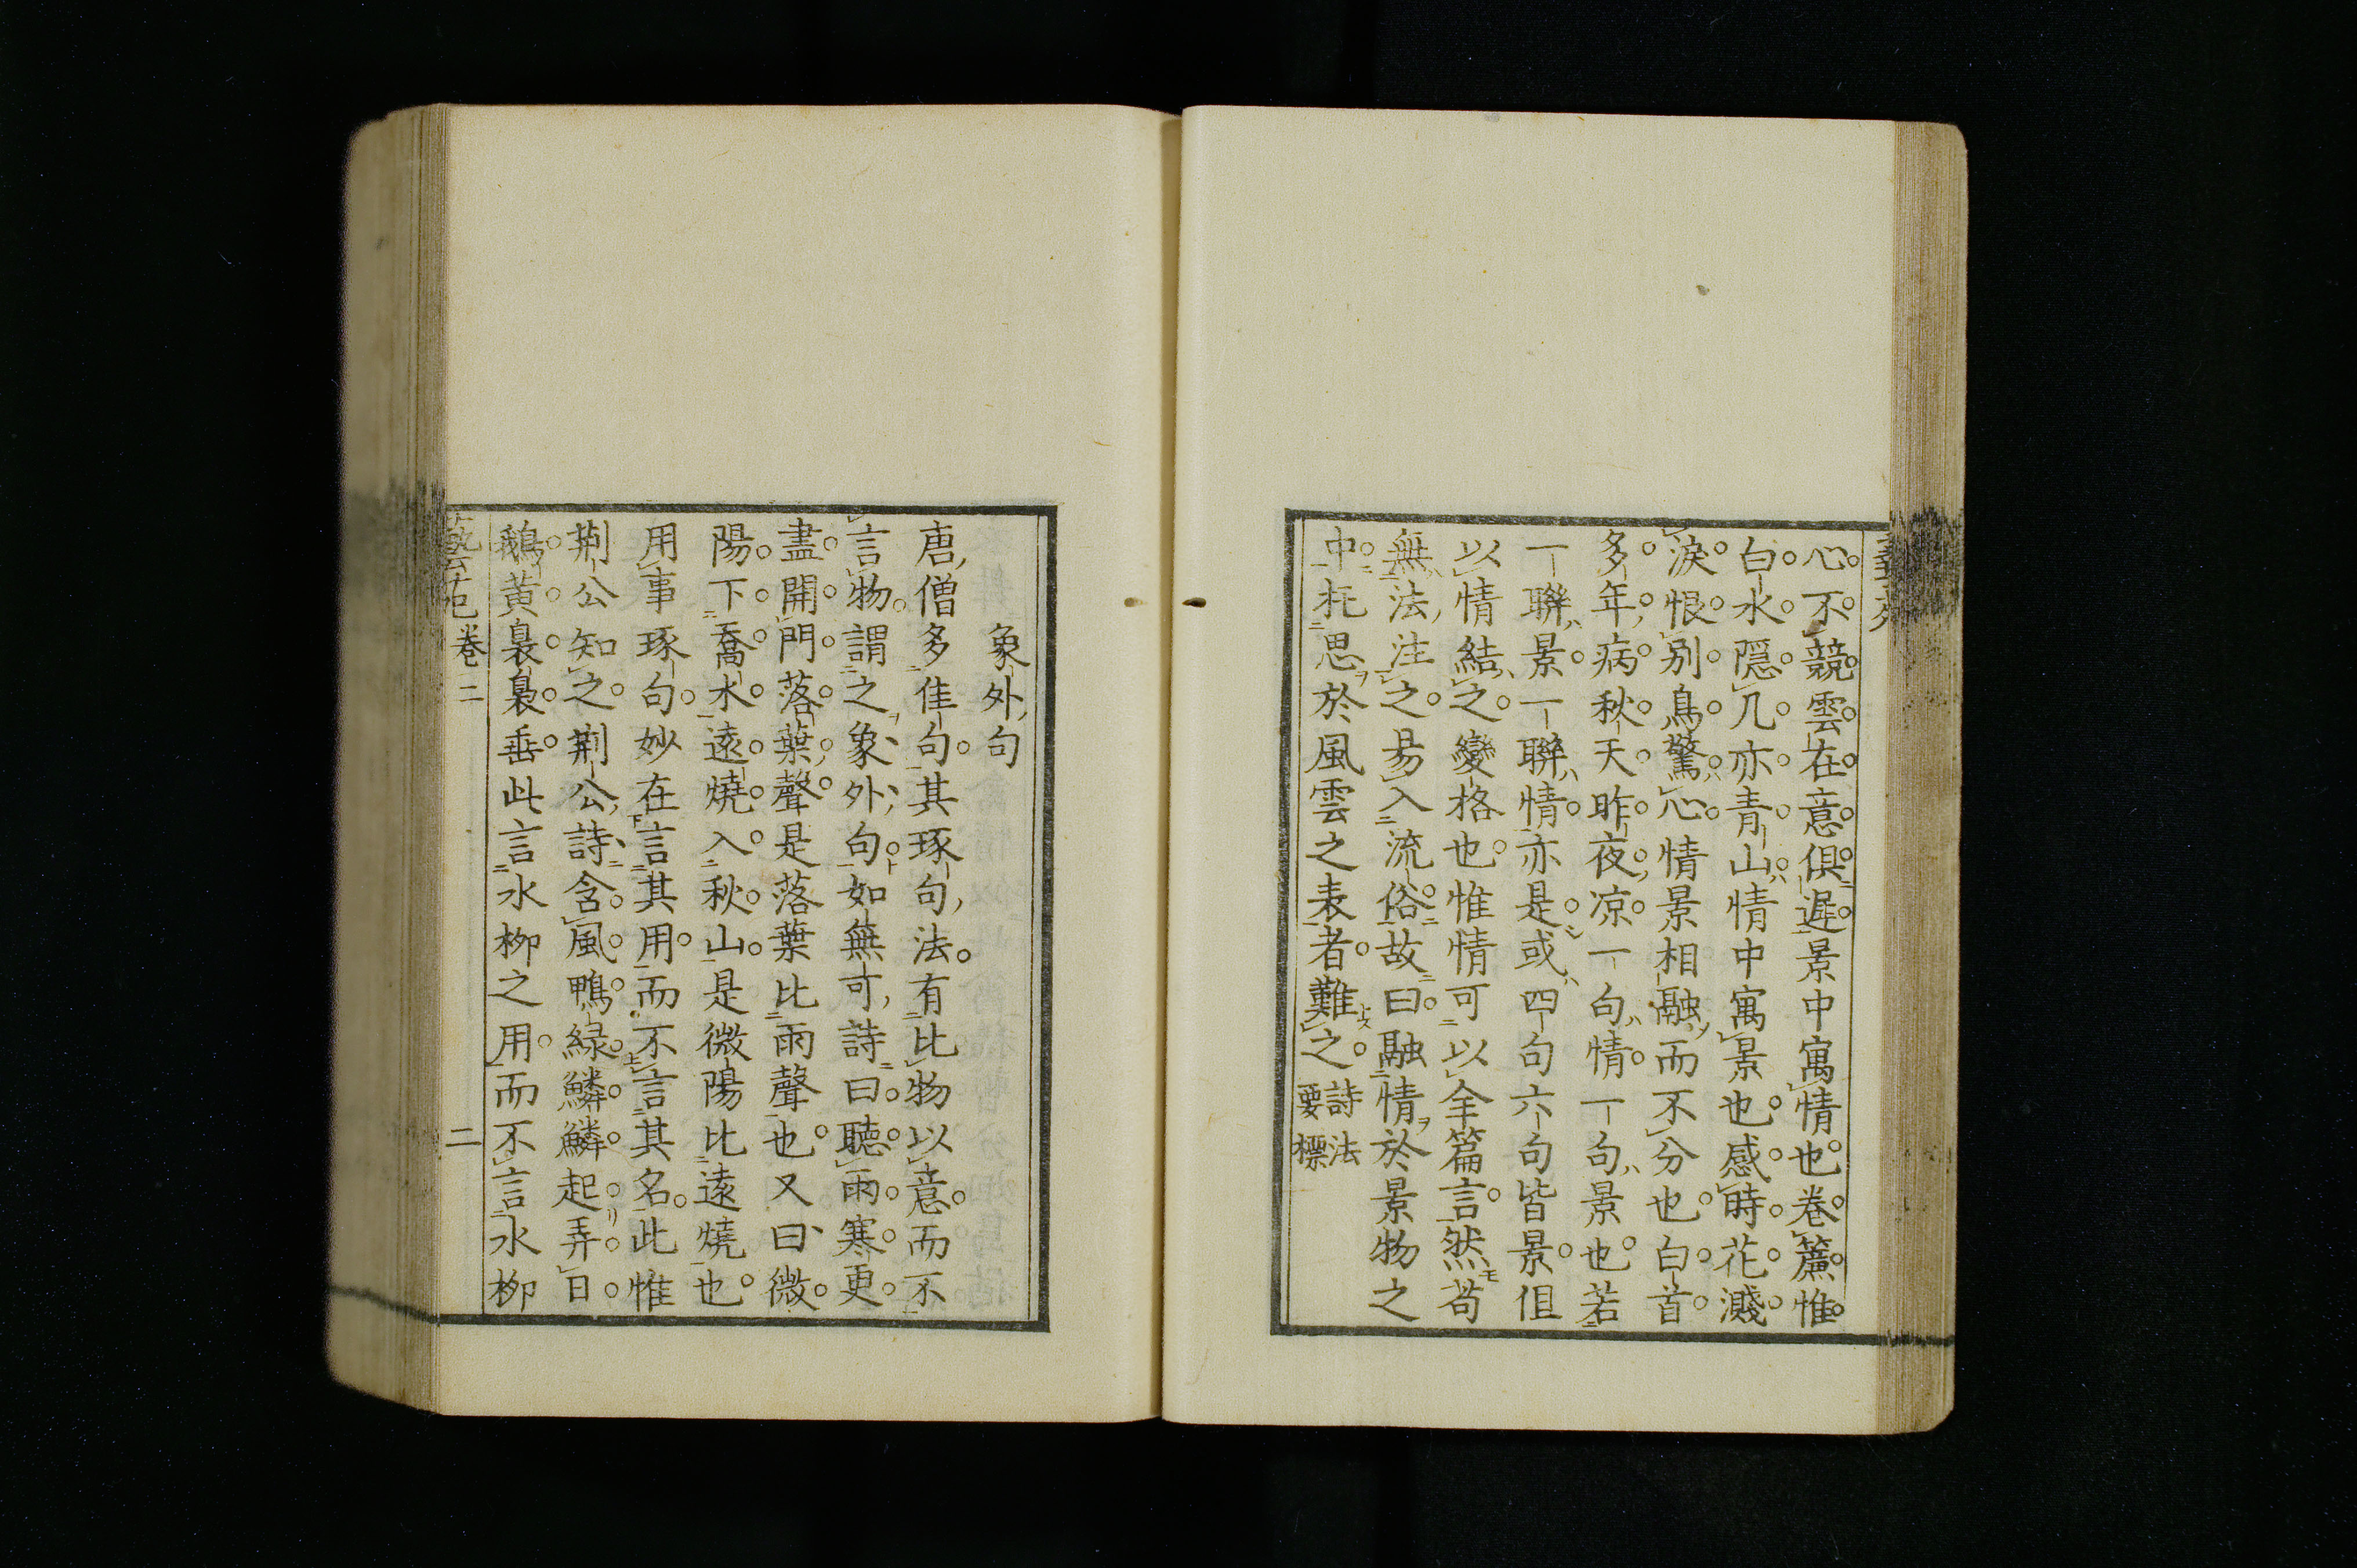 心不競雲在意俱遲景中寓情也卷簾惟
白水隱几亦青山情中寓景也感時花濺
淚恨別鳥驚心情景相融而不分也白首
多年病秋天昨夜凉一句情一句景也若
一聯景一聯情亦是或四句六句皆景但
以情結之變格也惟情可以全篇言然苟
無法注之易入流俗故曰融情於景物之
中托思於風雲之表者難之詩法
要標
象外句
唐僧多佳句其琢句法有比物以意而不
言物謂之象外句如無可詩曰聽雨寒更
盡開門落葉聲是落葉比雨聲也又曰微
陽下喬木遠燒入秋山是微陽比遠燒也
用事琢句妙在言其用而不言其名此惟
荆公知之荆公詩含風鴨緑鱗鱗起弄日
鵝黄裊裊垂此言水柳之用而不言水柳
藝苑卷二 二